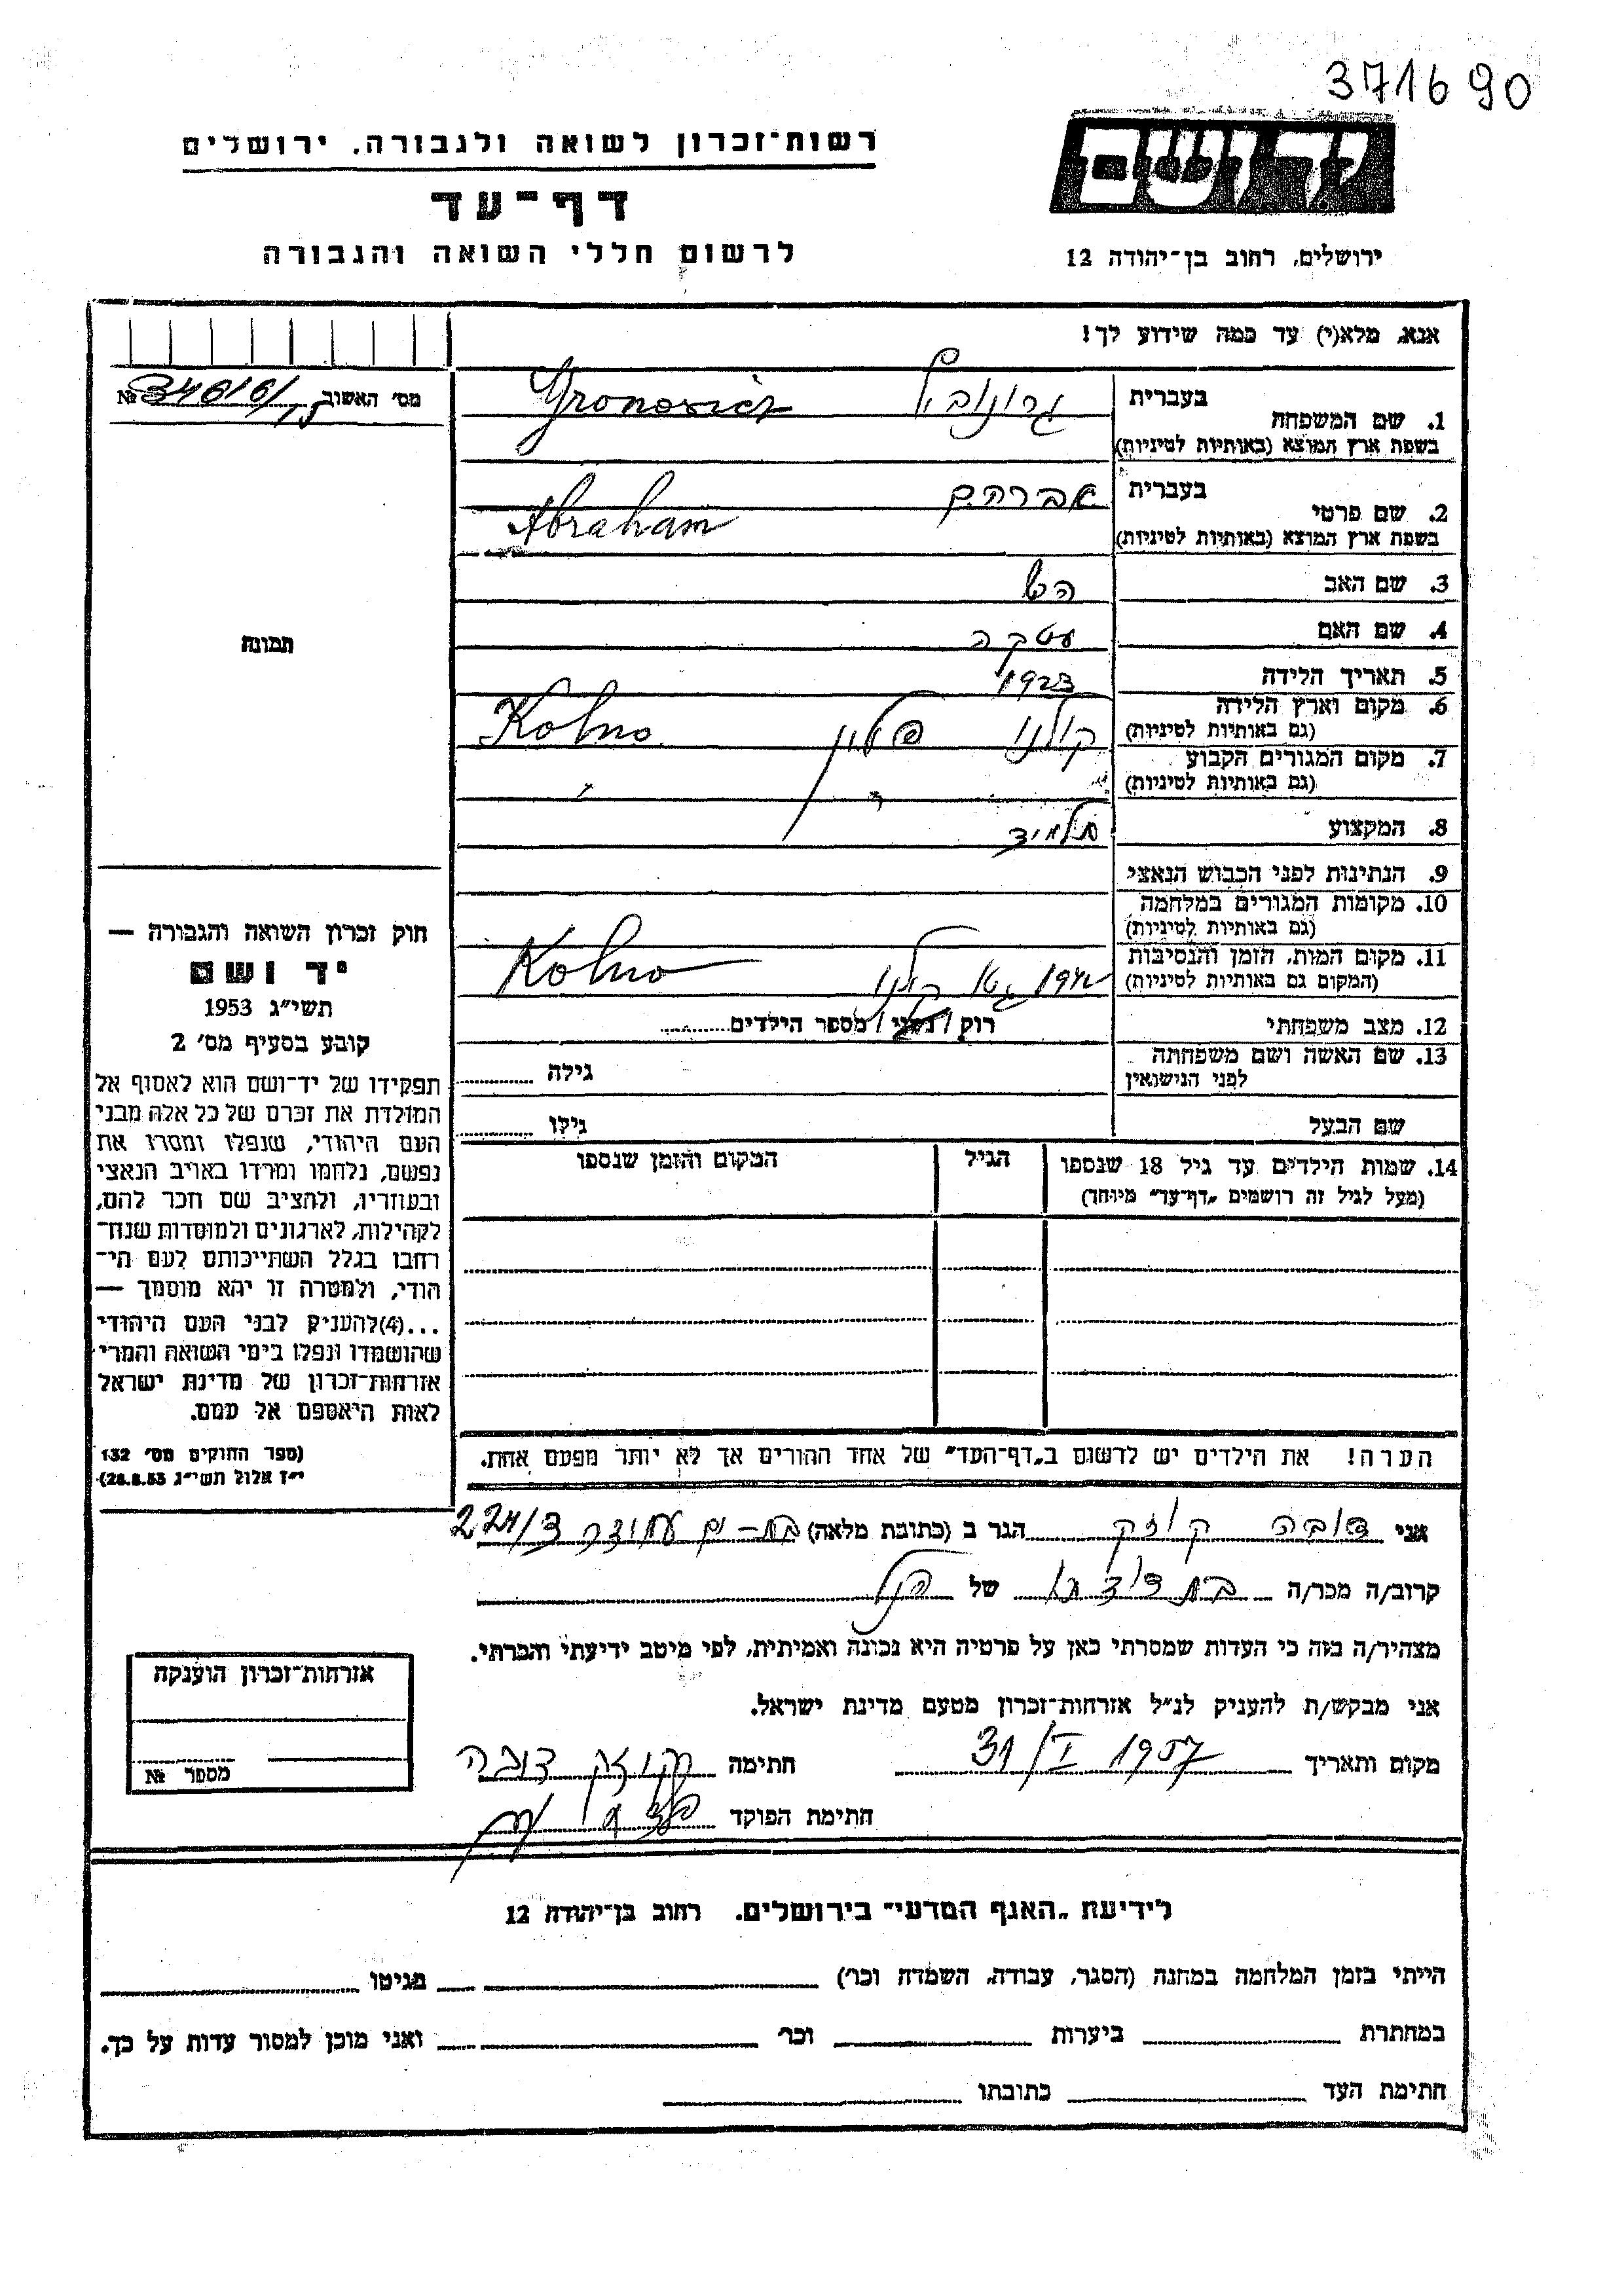 371690
רשות־זכרון לשואה ולגבורה, ירושלים
דף־עד
לרשום חללי השואה והגבורה
ידושם
ירושלים, רחוב בן־יהודה 12
אנא, מלא(י) עד כמה שידוע לך!
מס׳ האשוב №
1. שם המשפחה בעברית
בשפת ארץ המוצא (באותיות לטיניות) Gronowicz
2. שם פרטי בעברית אברהם
בשפת ארץ המוצא (באותיות לטיניות) Abraham
3. שם האב הש
4. שם האם עטקה
5. תאריך הלידה 1923
6. מקום וארץ הלידה (גם באותיות לטיניות) קולנו פולין Kolno
7. מקום המגורים הקבוע (גם באותיות לטיניות) " "
8. המקצוע תלמיד
9. הנתינות לפני הכבוש הנאצי
10. מקומות המגורים במלחמה (גם באותיות לטיניות)
11. מקום המות, הזמן והנסיבות (המקום גם באותיות לטיניות) גטו קולנו Kolno
12. מצב משפחתי רוק / נשוי / מספר הילדים
13. שם האשה ושם משפחתה לפני הנישואין גילה
שם הבעל גילו
14. שמות הילדים עד גיל 18 שנספו הגיל המקום והזמן שנספו
(מעל לגיל זה רושמים „דף־עד" מיוחד)
הערה! את הילדים יש לרשום ב„דף־העד" של אחד ההורים אך לא יותר מפעם אחת.
תמונה
חוק זכרון השואה והגבורה —
יד ושם
תשי״ג 1953
קובע בסעיף מס׳ 2
תפקידו של יד־ושם הוא לאסוף אל
המולדת את זכרם של כל אלה מבני
העם היהודי, שנפלו ומסרו את
נפשם, נלחמו ומרדו באויב הנאצי
ובעוזריו, ולהציב שם וזכר להם,
לקהילות, לארגונים ולמוסדות שנח־
רבו בגלל השתייכותם לעם הי־
הודי, ולמטרה זו יהא מוסמך —
...(4)להעניק לבני העם היהודי
שהושמדו ונפלו בימי השואה והמרי
אזרחות־זכרון של מדינת ישראל
לאות היאספם אל עמם.
(ספר החוקים מס׳ 132
י״ז אלול תשי״ג 28.8.53)
אני דובה קוזק הגר ב (כתובת מלאה) בת-ים
קרוב/ה מכר/ה בת דודתו של הנ״ל
מצהיר/ה בזה כי העדות שמסרתי כאן על פרטיה היא נכונה ואמיתית, לפי מיטב ידיעתי והכרתי.
אני מבקש/ת להעניק לנ״ל אזרחות־זכרון מטעם מדינת ישראל.
מקום ותאריך 31/I 1957 חתימה קוזק דובה
חתימת הפוקד
אזרחות־זכרון הוענקה
מספר №
לידיעת „האגף המדעי" בירושלים, רחוב בן־יהודה 12
הייתי בזמן המלחמה במחנה (הסגר, עבודה, השמדה וכו׳) בגיטו
במחתרת ביערות וכו׳ ואני מוכן למסור עדות על כך.
חתימת העד כתובתו